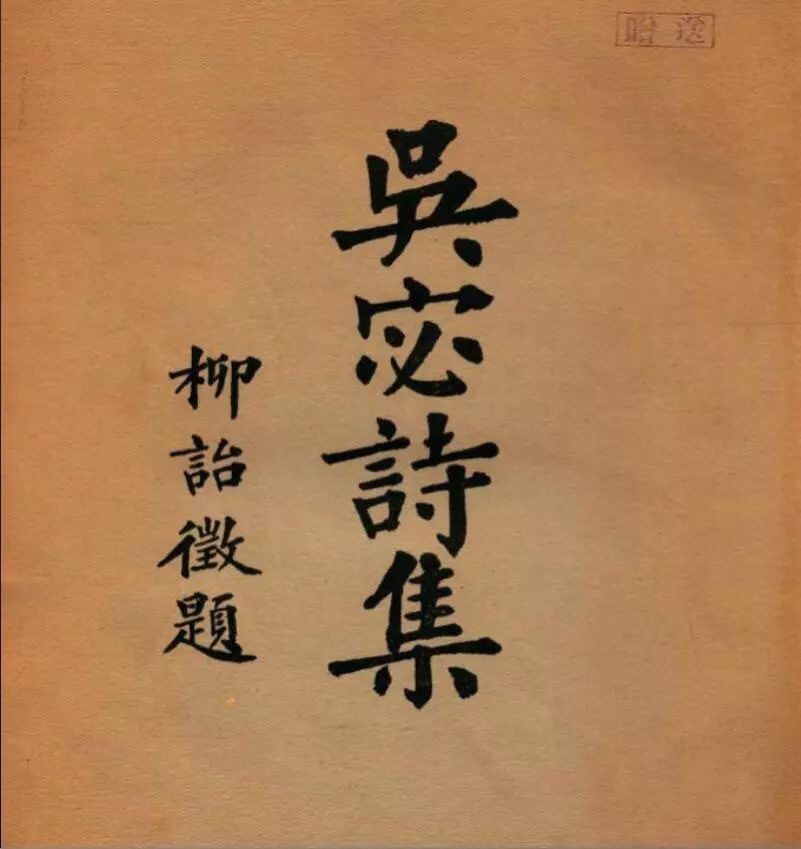 贈送
吳宓詩集
柳詒徵題